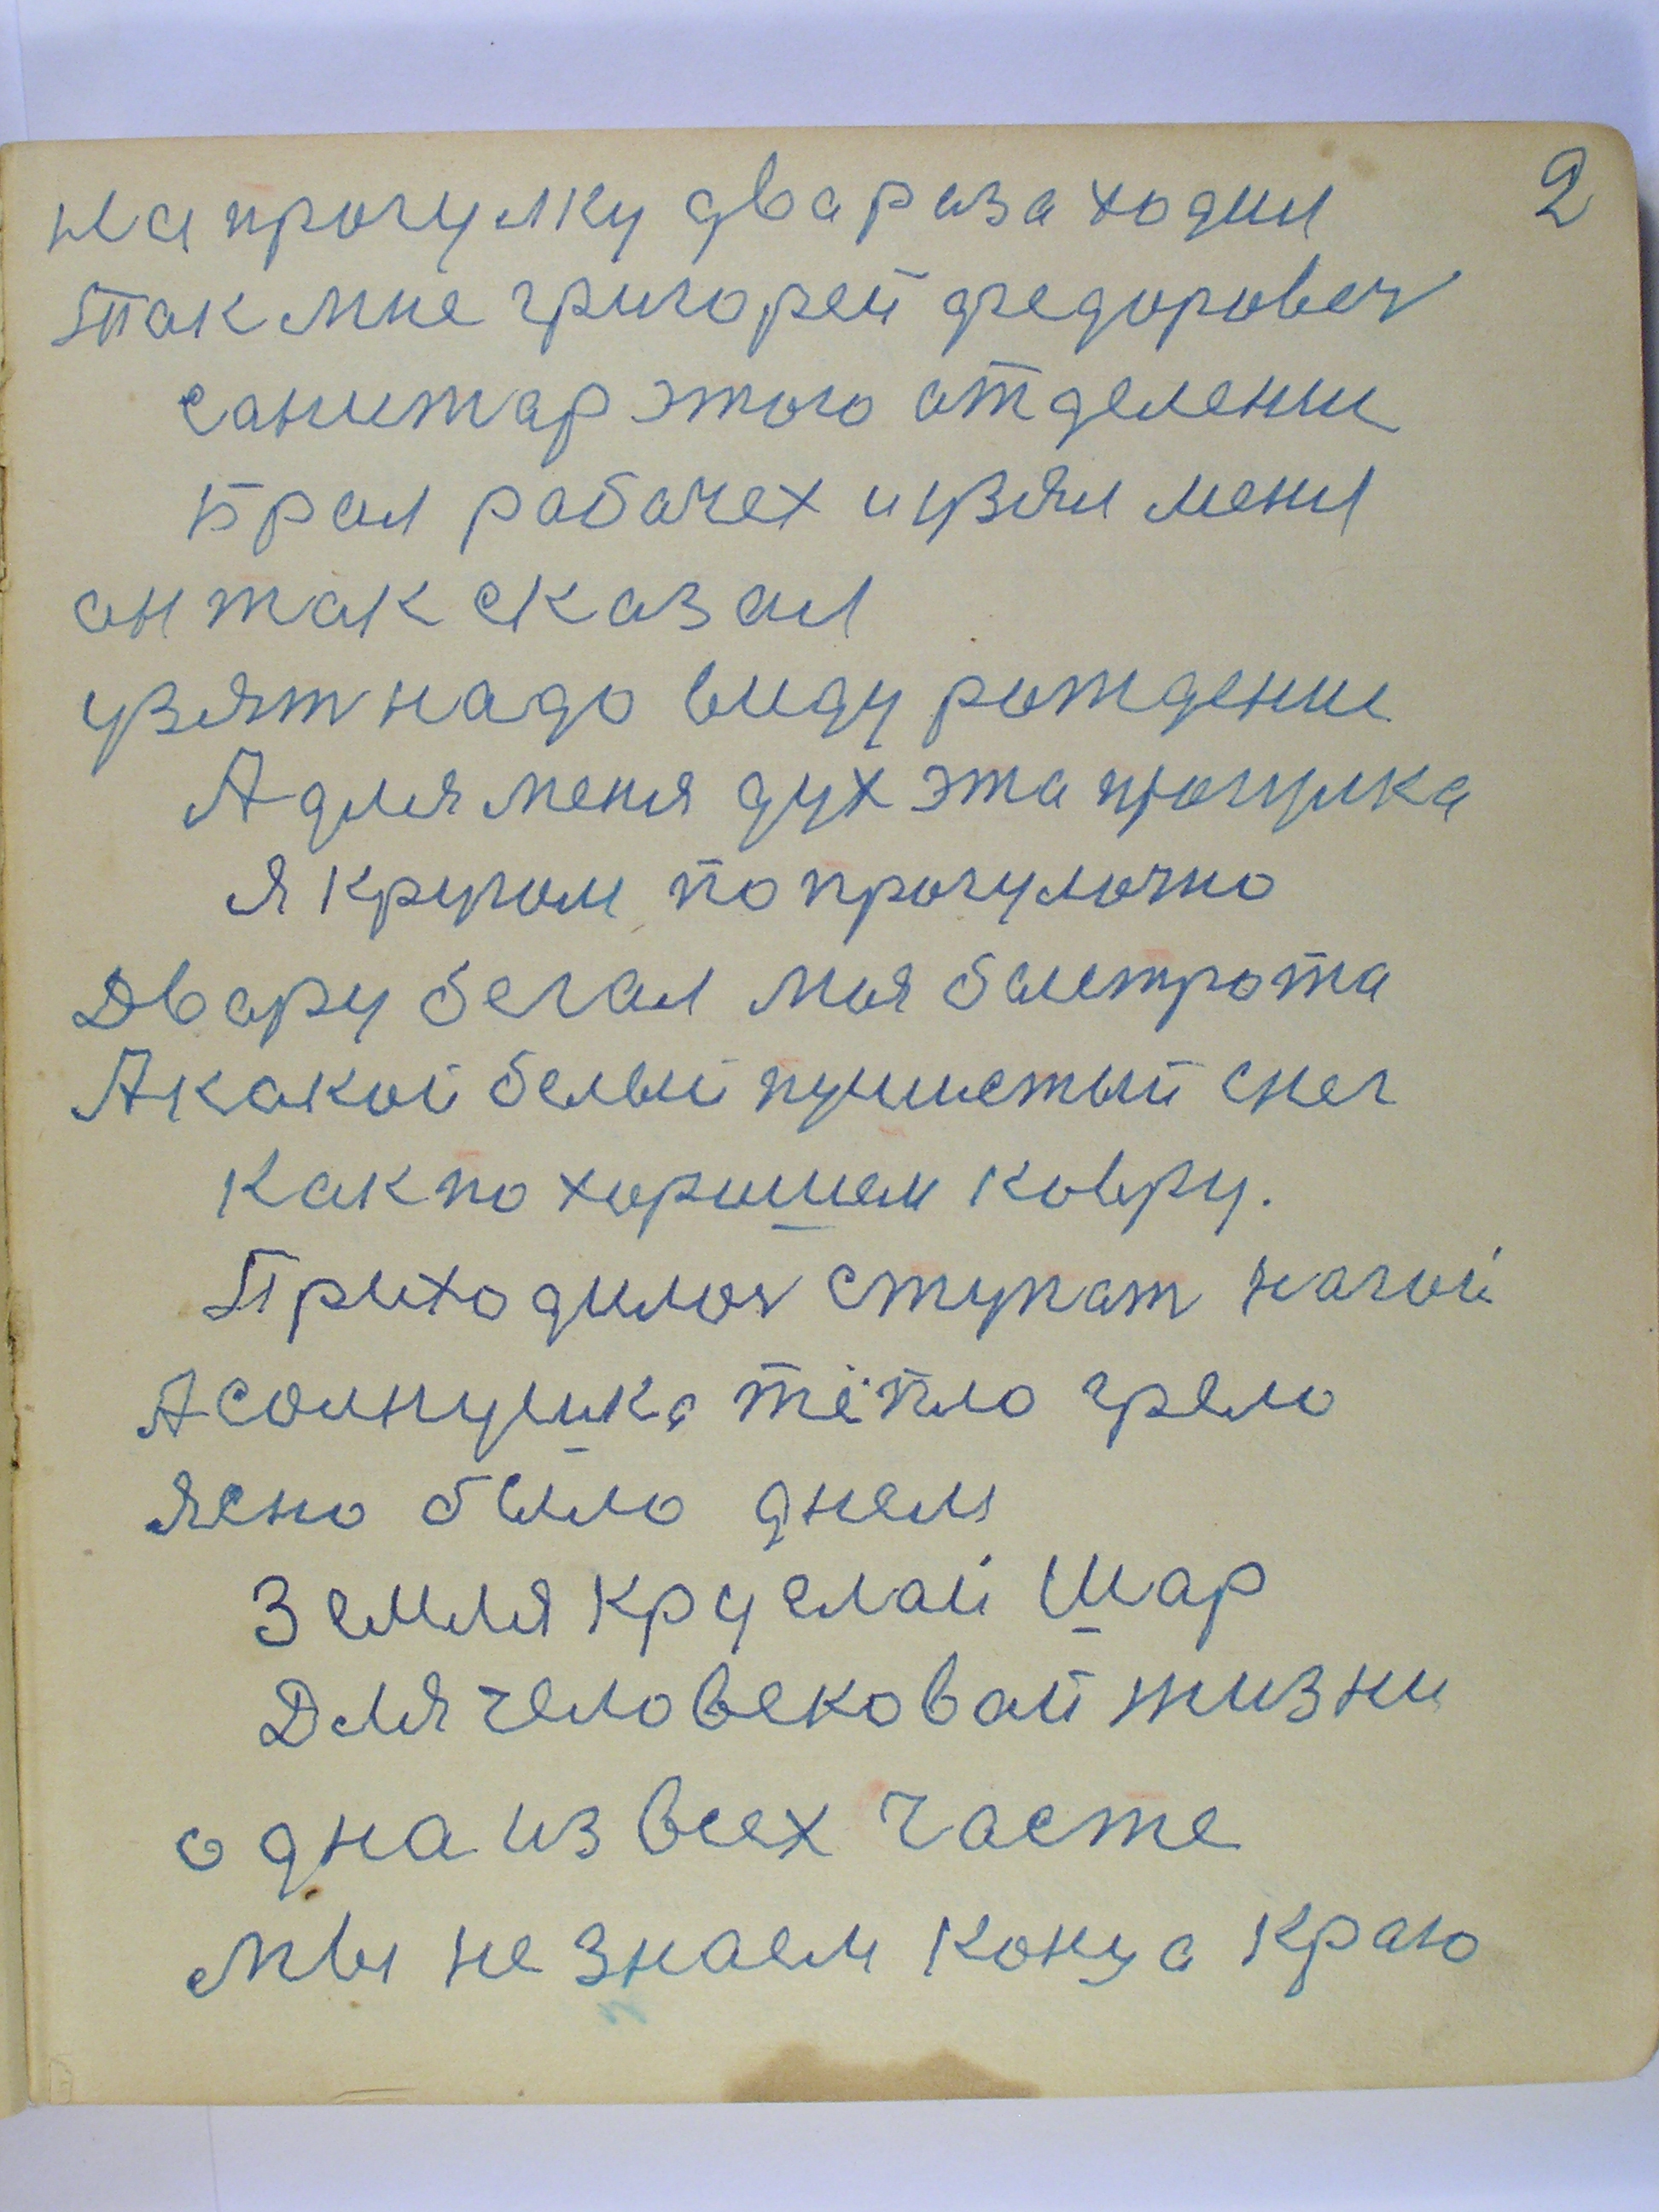 2
на прогулку два раза ходил
Так мне григорей федоровеч
санитар этого атделении
Брал рабочех и узял меня
он так сказал
узят надо виду рождении
А для меня дух эта прогулка
я кругом по прогулочно
Двору бегал моя быстрота
А какой белый пушистый снег
Как по хорошем ковру.
Приходилос ступат нагой
А солнушка тёпло грело
ясно было днем
Земля круглай шар
Для человековай жизни
одна из всех часте
мы не знаем конца краю